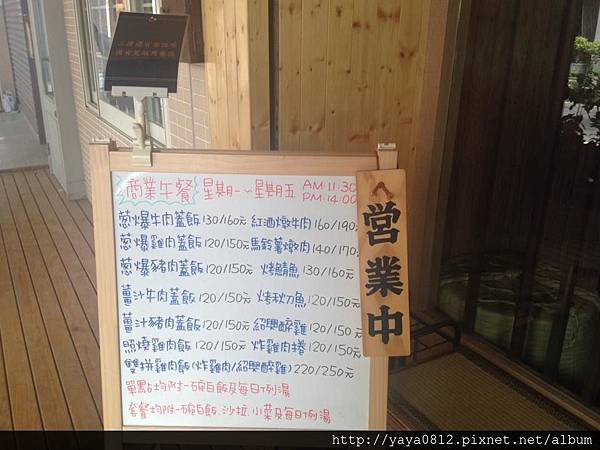 商業午餐 星期一～星期五 AM:11:30
PM:14:00
蔥爆牛肉蓋飯 130/160元 紅酒燉牛肉 160/190
蔥爆雞肉蓋飯 120/150元 馬鈴薯燉肉 140/170
蔥爆豬肉蓋飯 120/150元 烤鯖魚 130/160元
薑汁牛肉蓋飯 120/150元 烤秋刀魚 120/150元
薑汁豬肉蓋飯 120/150元 紹興醉雞 120/150元
照燒雞肉飯 120/150元 炸雞肉捲 120/150元
雙拼雞肉飯(炸雞肉/紹興醉雞) 220/250元
單點均附一碗白飯及每日例湯
套餐均附一碗白飯、沙拉、小菜及每日例湯
營業中
http://yaya0812.pixnet.net/album